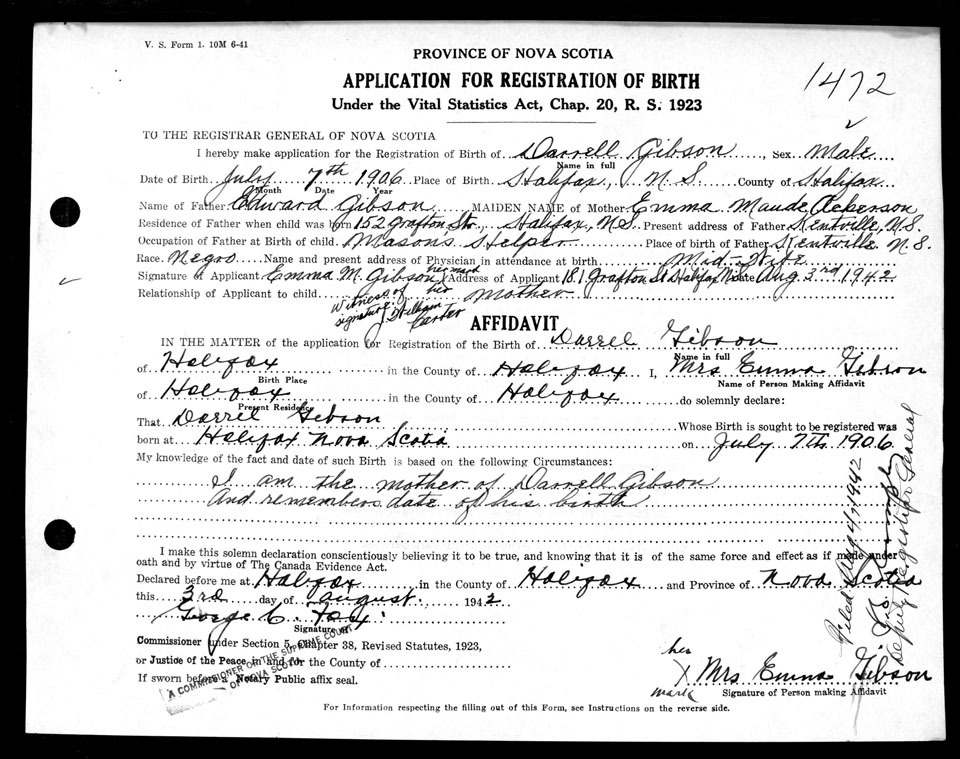 V. S. Form 1. 10M 6-41
PROVINCE OF NOVA SCOTIA
APPLICATION FOR REGISTRATION OF BIRTH
Under the Vital Statistics Act, Chap. 20, R. S. 1923
1472
TO THE REGISTRAR GENERAL OF NOVA SCOTIA
I hereby make application for the Registration of Birth of Darrell Gibson, Sex Male
Name in full
Date of Birth July 7th 1906 Place of Birth Halifax, N S County of Halifax
Month Date Year
Name of Father Edward Gibson MAIDEN NAME of Mother Emma Maude Ackerson
Residence of Father when child was born 152 Grafton Str., Halifax, N.S. Present address of Father Kentville, N.S.
Occupation of Father at Birth of child. Masons Helper Place of birth of Father Kentville N. S.
Race. Negro Name and present address of Physician in attendance at birth Mid-Wife
Signature of Applicant Emma M. Gibson her mark Address of Applicant 181 Grafton St Halifax NS Date Aug 3rd 1942
Relationship of Applicant to child Mother
Witness of her
signature. William
Carter
AFFIDAVIT
IN THE MATTER of the application for Registration of the Birth of Darrel Gibson
Name in full
of Halifax in the County of Halifax I, Mrs Emma Gibson
Birth Place Name of Person Making Affidavit
of Halifax in the County of Halifax do solemnly declare:
Present Residence
That Darrel Gibson Whose Birth is sought to be registered was
born at Halifax Nova Scotia on July 7th 1906
My knowledge of the fact and date of such Birth is based on the following Circumstances:
I am the mother of Darrell Gibson
And remembers date of his birth
I make this solemn declaration conscientiously believing it to be true, and knowing that it is of the same force and effect as if made under
oath and by virtue of The Canada Evidence Act.
Declared before me at Halifax in the County of Halifax and Province of Nova Scotia
this 3rd day of August 1942
George C. Fox
Signature of
Commissioner under Section 5, Chapter 38, Revised Statutes, 1923,
or Justice of the Peace, in and for the County of
If sworn before a Notary Public affix seal.
A COMMISSIONER OF THE SUPREME COURT
OF NOVA SCOTIA
her
X Mrs Emma Gibson
mark
Signature of Person making Affidavit
For Information respecting the filling out of this Form, see Instructions on the reverse side.
Filed Aug 4, 1942
Deputy Registrar General